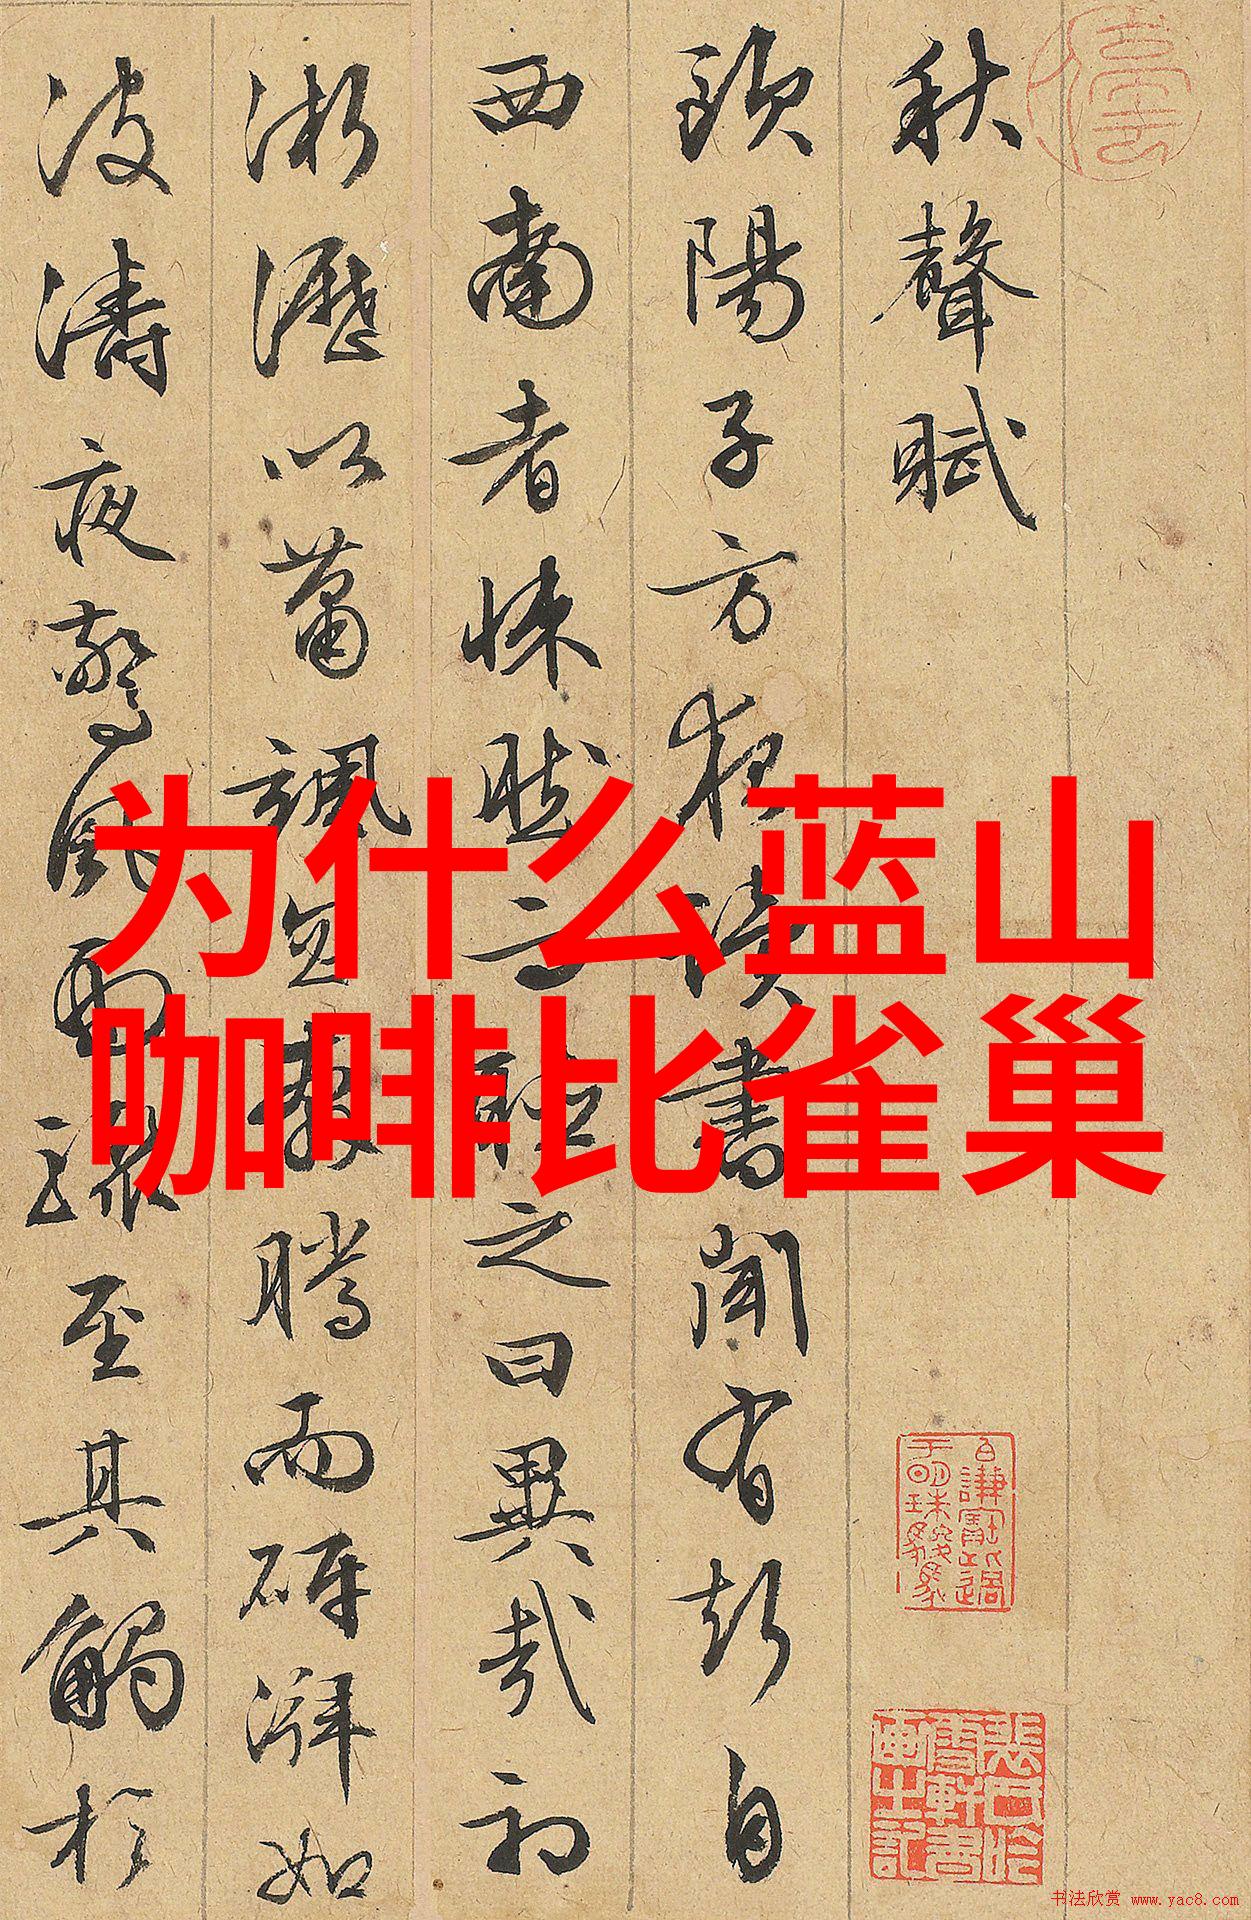 秋聲賦
歐陽子方夜讀書聞有聲自
西南者悚然而聽之曰異哉初
淅瀝以蕭颯忽奔騰而砰湃如
波濤夜驚風雨驟至其觸於
为什么蓝山
咖啡比雀巢
书法欣赏 www.yac8.com